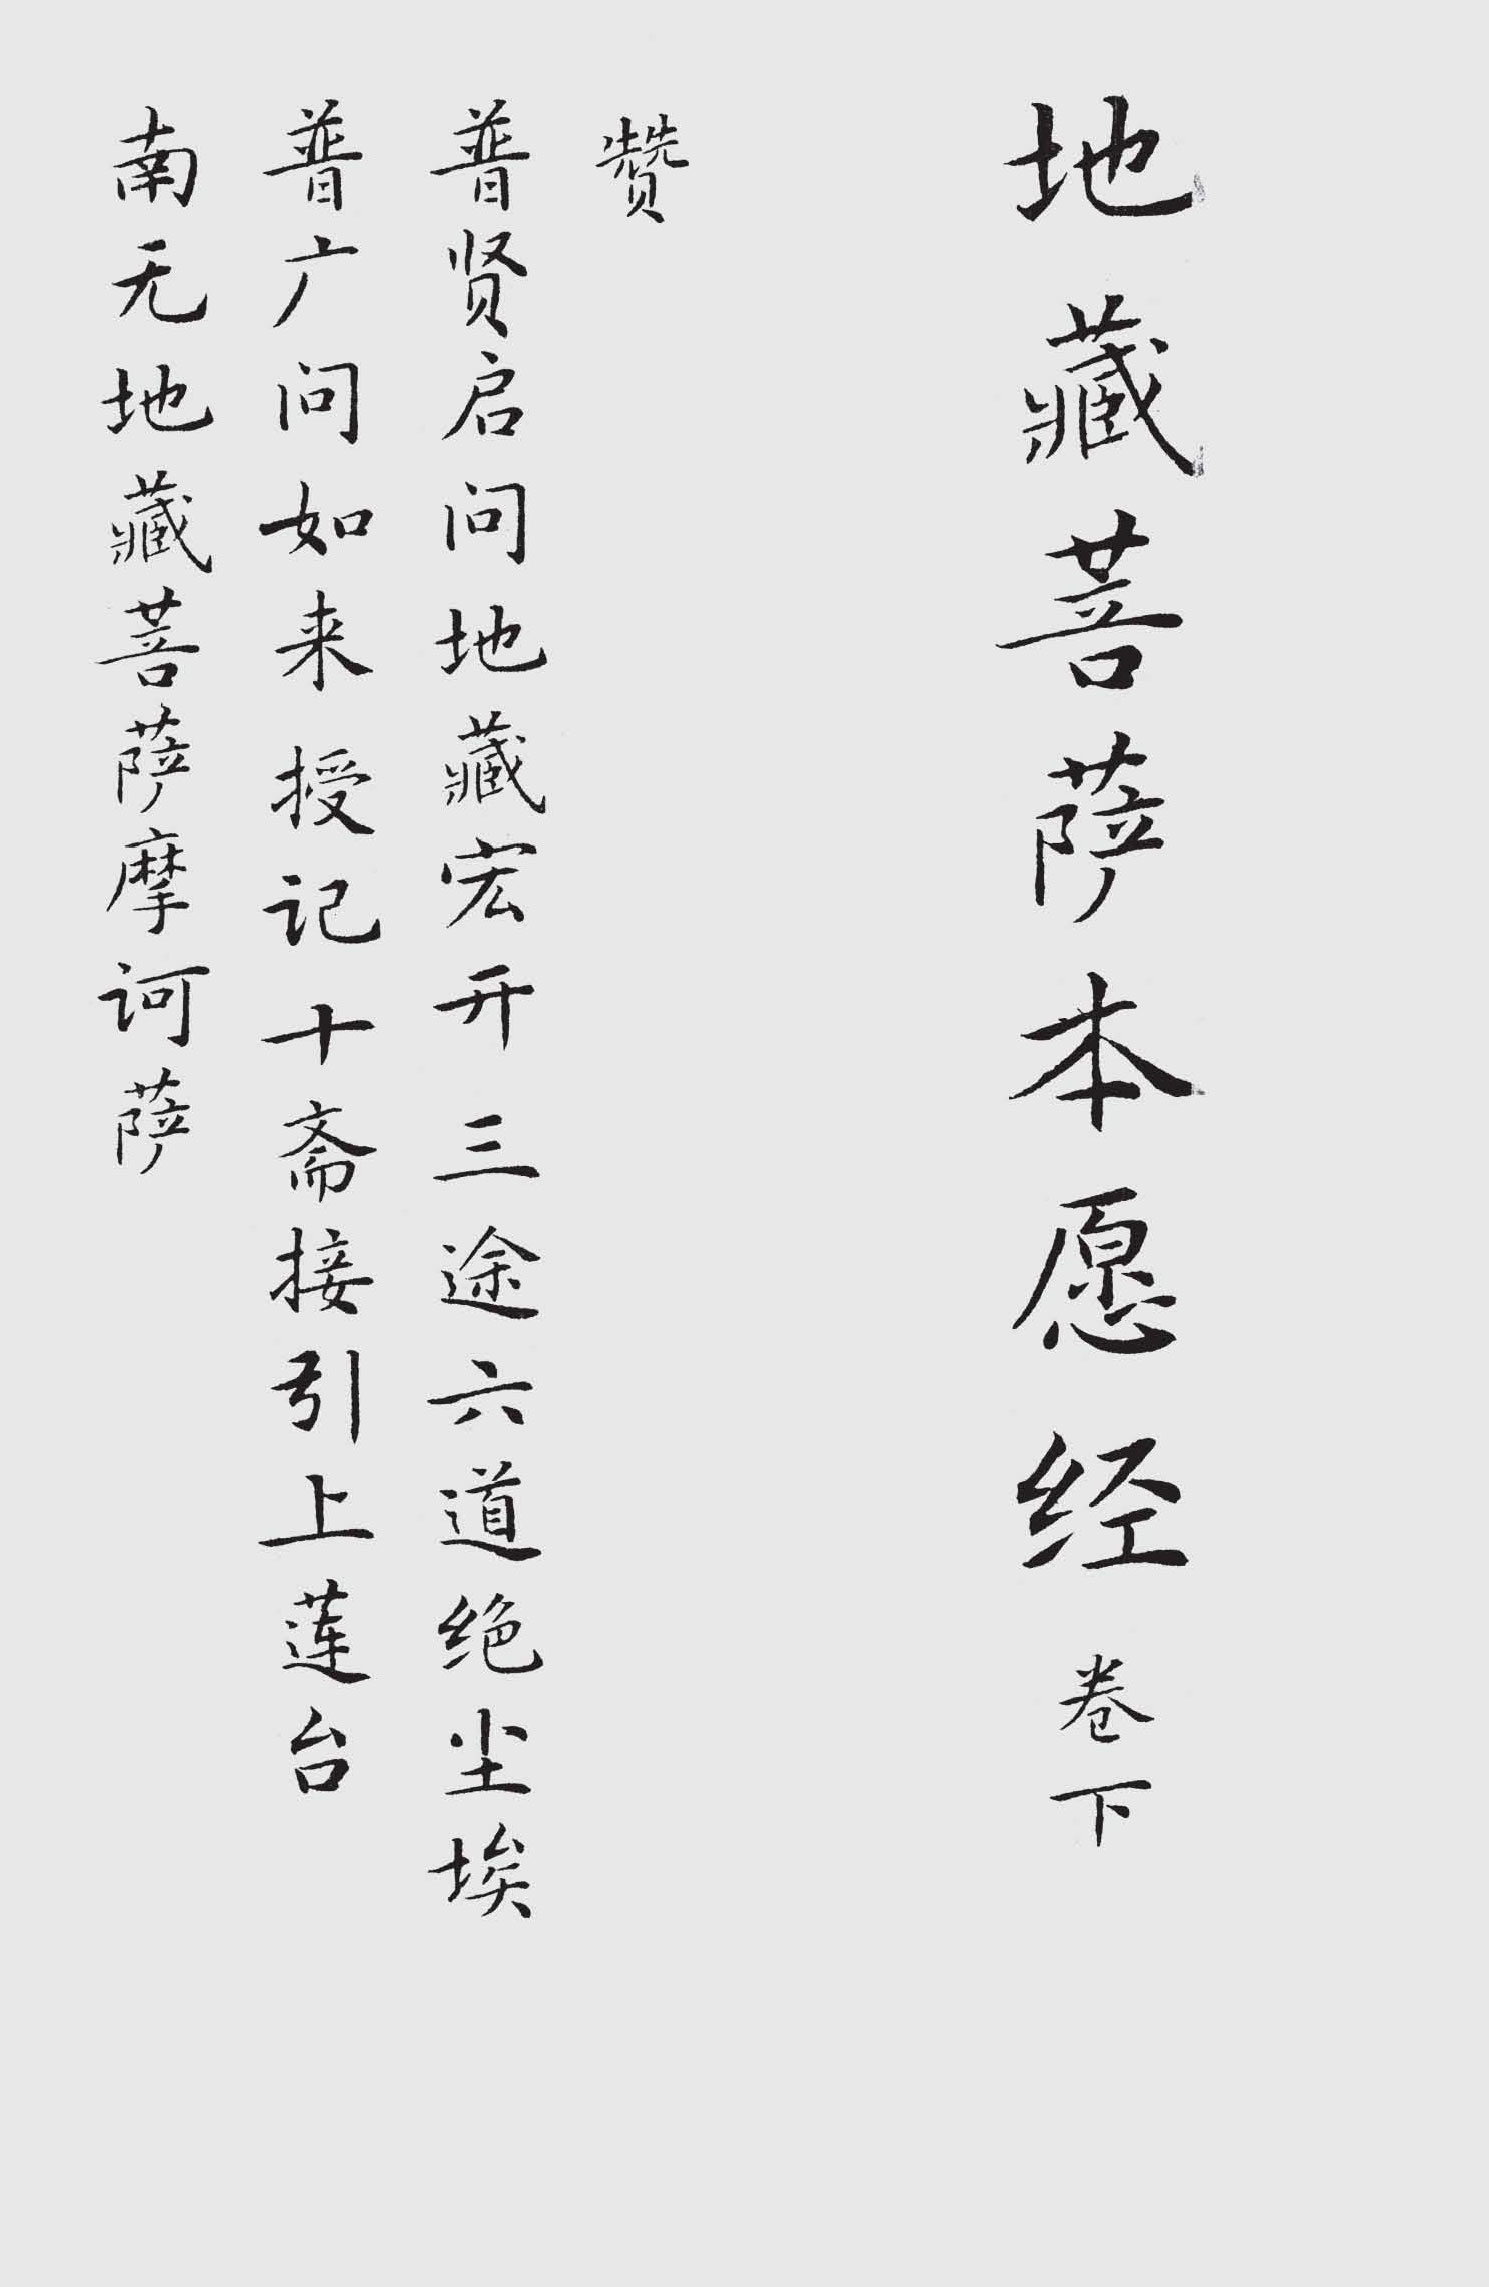 地藏菩萨本愿经 卷下
赞
普贤启问地藏宏开三途六道绝尘埃
普广问如来授记十斋接引上莲台
南无地藏菩萨摩诃萨